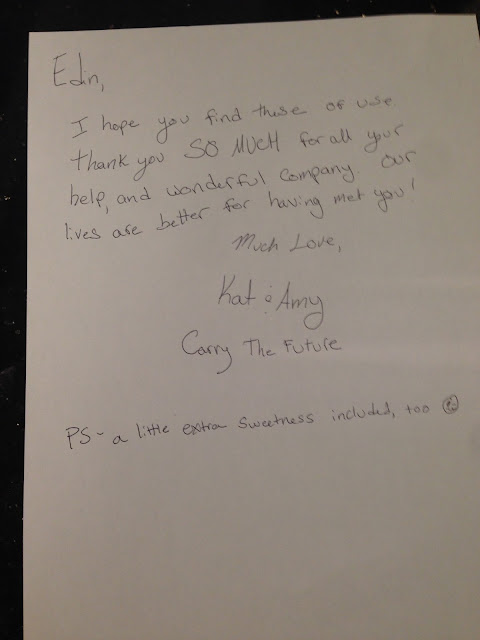 Edin,
I hope you find these of use.
thank you SO MUCH for all your
help, and wonderful company. Our
lives are better for having met you!
Much Love,
Kat & Amy
Carry The Future
PS- a little extra sweetness included, too ☺